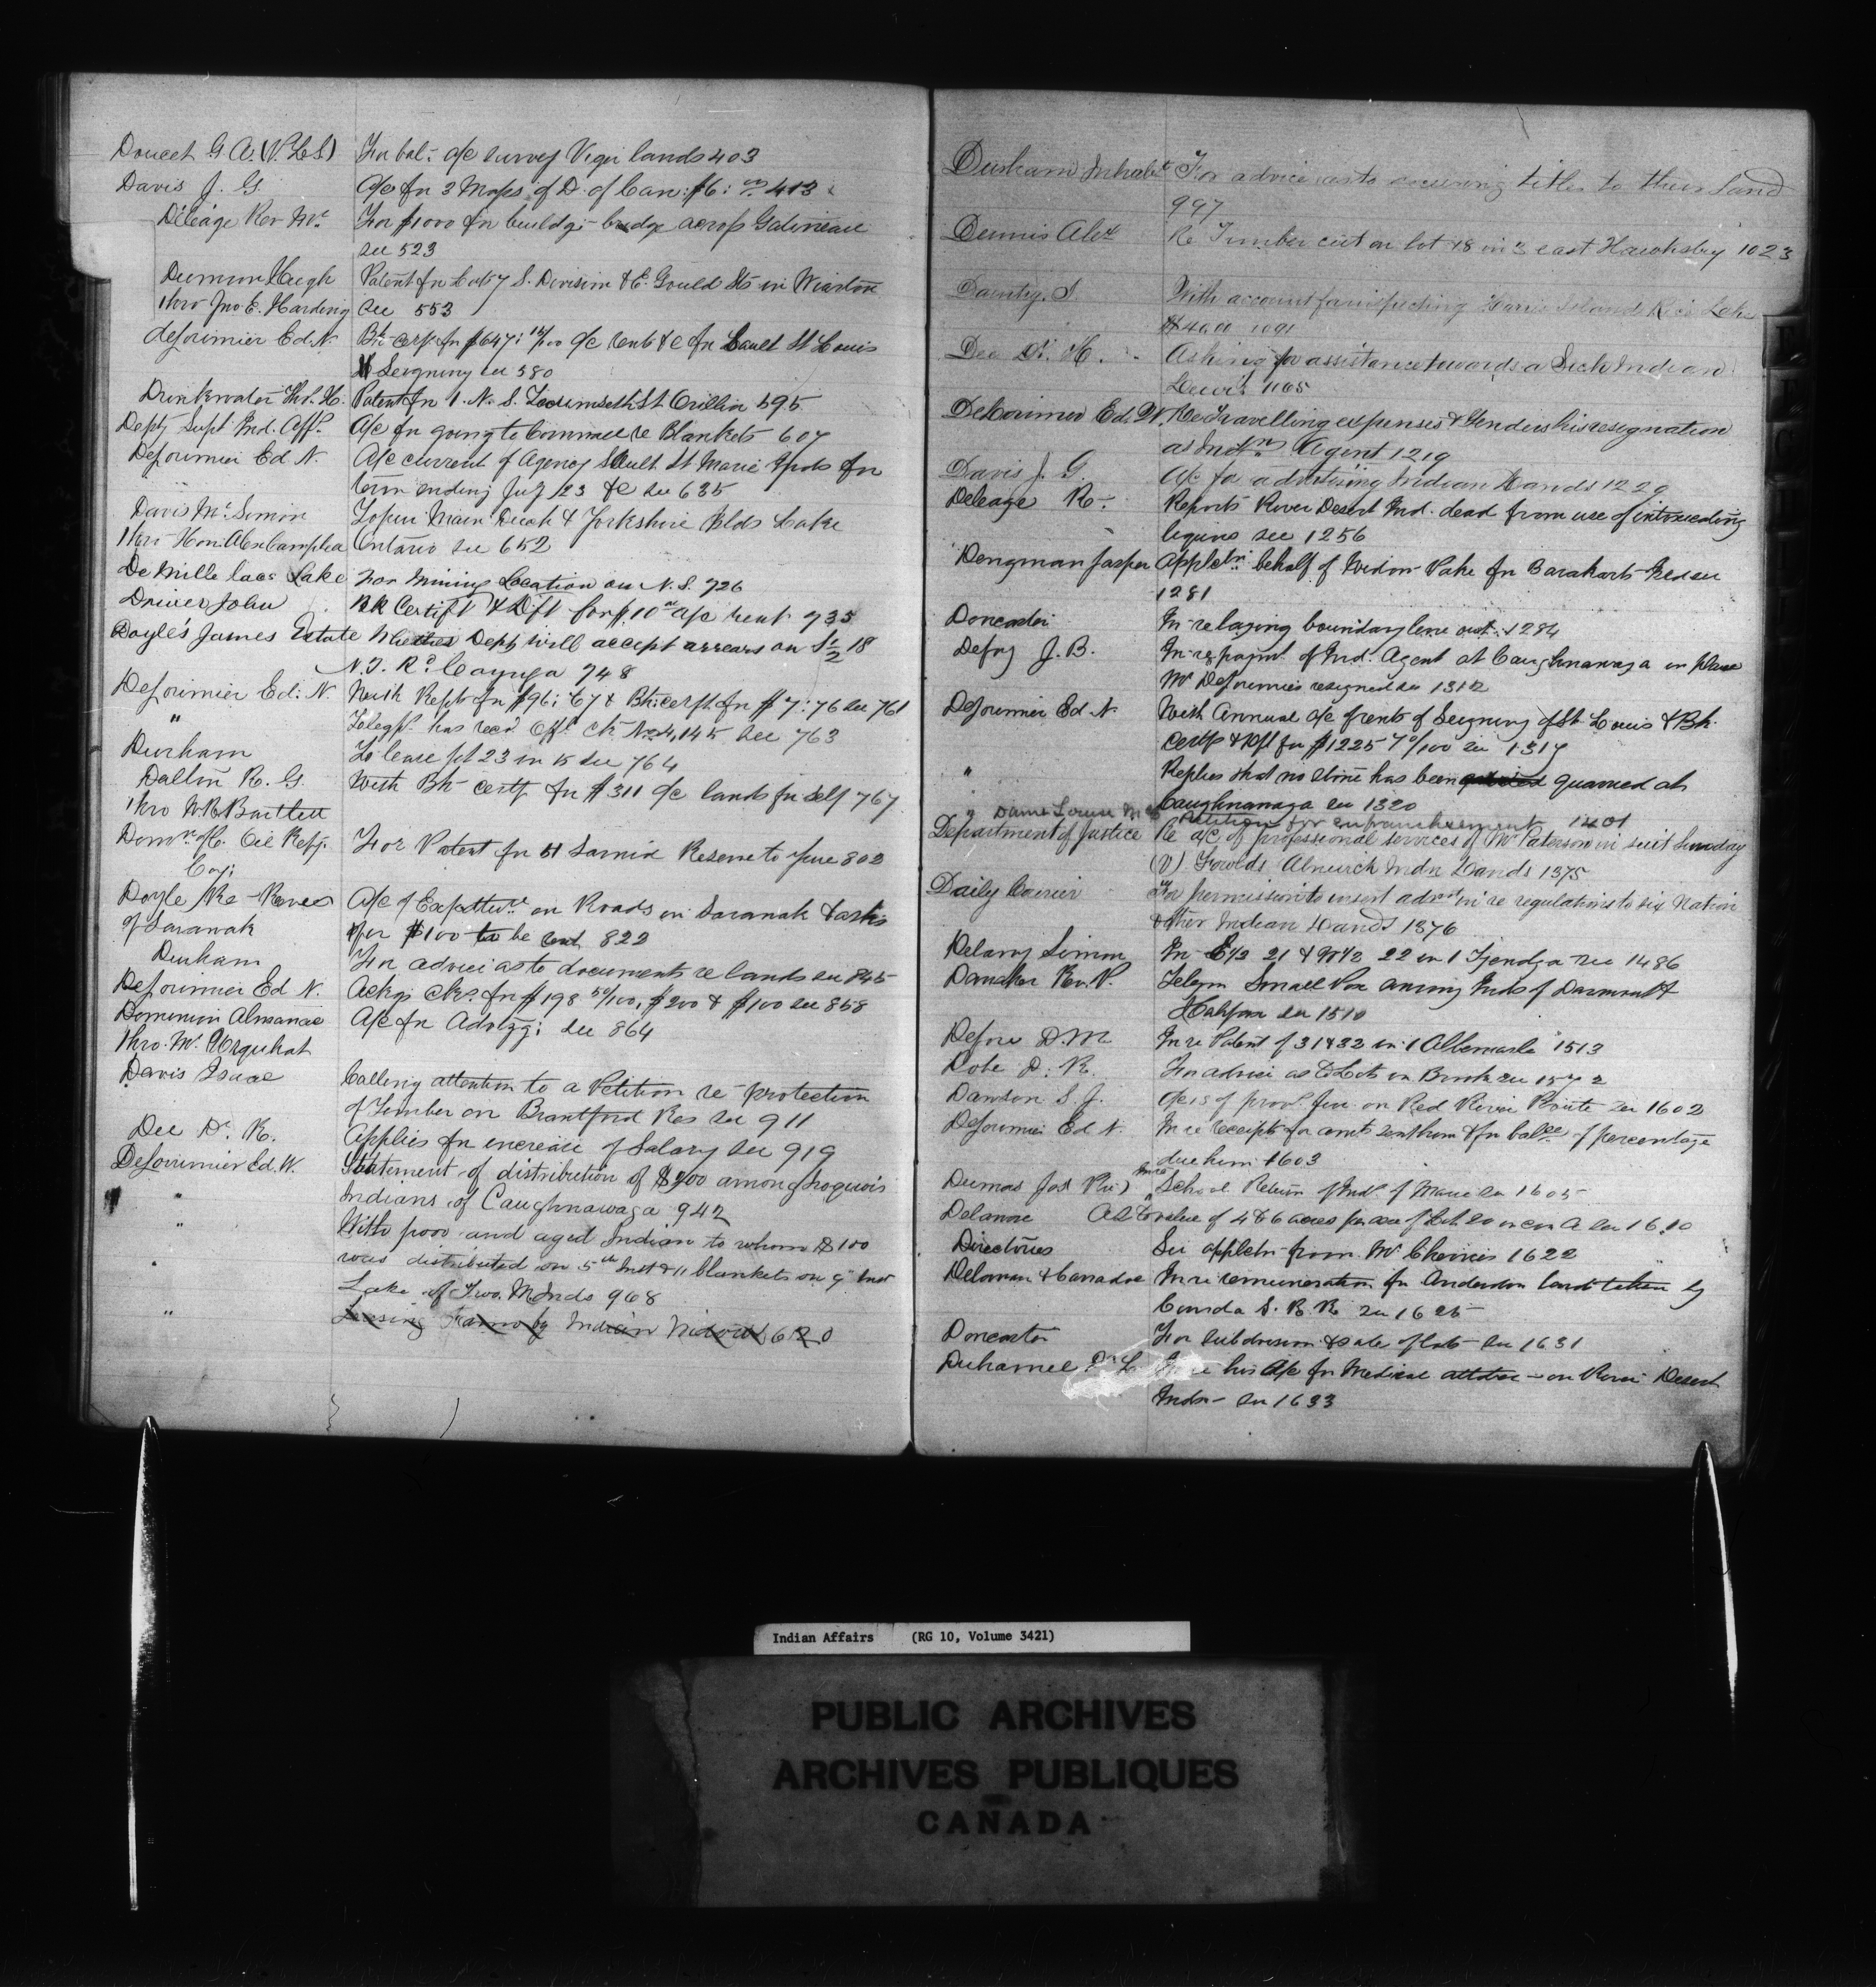 Doucet G. A. (P.L.S) For bal: a/c survey Viger lands 403
Davis J. G. A/c for 3 Maps of D. of Can: $6: 413
Déléage Rev Mr. For $1000 for buildg: bridge across Gatineau
see 523
Hugh Patent for Lot 7 S. Division & E. Gould Sts in Wiarton
thro Jno E. Harding see 553
deLorimier Ed. N. Bk Certf for $647: /100 a/c rents &c for Sault St Louis
Seigniory see 580
Drinkwater Thos. H. Patent for 1. N. S. Tecumseth St Orillia 595
Depty Supt Ind. Aff. A/c for going to Cornwall re Blankets 607
DeLorimier Ed N. A/c current of Agency Sault St
term ending July /23 &c see 635
Davis Mr. Simon Main Duck & Yorkshire Islds Lake
thro Hon. Alex Campbell Ontario see 652
De Mille lacs Lake For Mining Location on N. S. 726
Driver John Bk Certift & Dft for $10 a/c rent 735
Doyle's James Estate Whether Dept will accept arrears on S½ 18
N. T. Rd. Cayuga 748
DeLorimier Ed: N. With Rept for $96: 67 & Bk: certft for $7:76 see 761
" Telegph. has recd Offl. ck No 4,145 see 763
Durham To lease lot 23 in 15 see 764
Dalton R. G. With Bk certf for $311 a/c lands for self 767
thro W. R. Bartlett
Domn. of C. Oil Refg.
Coy: For Patent for 51 Sarnia Reserve to 802
Doyle Re - Reeve A/c of Expenditure on Roads in Sarawak & asks
of Sarawak for $100 to be sent 822
Durham For advice as to documents re lands see 845
DeLorimier Ed N. Ackgs cks. for $198 50/100, $200 & $100 see 858
Dominion Almanac A/c for Advtzg: see 864
thro. Mr. Urquhart
Davis Isaac Calling attention to a Petition re protection
of Timber on Brantford Res see 911
Dee Dr. R. Applies for increase of Salary see 919
DeLorimier Ed. W. Statement of distribution of $200 among Iroquois
" Indians of Caughnawaga 942
" With poor and aged Indian to whom $100
" was distributed on 5th Inst & 11 blankets on 9" Inst
Lake of Two M. Inds 968
" Leasing Farms by Indian Widows 620
Durham Inhabts For advice as to securing titles to their land
997
Dennis Alex Re Timber cut on lot 18 in 3 east Hawksbury 1023
With account for inspecting Islands Rice Lake
$40.00 1091
Dee Dr. H. Asking for assistance towards a Sick Indian
Lewis 1165
DeLorimier Ed. W. Re travelling expenses & tenders his resignation
as Indn Agent 1219
Davis J. G. A/c for advertising Indian Lands 1229
Deleage R. Reports River Desert Ind. dead from use of intoxicating
liquors see 1256
Dengman Jasper Appletn: behalf of Widow
1281
Doncaster In re laying boundary line out 1284
Defoy J. B. In re appoint of Ind. Agent at Caughnawaga in place
Mr DeLorimier resigned see 1312
DeLorimier Ed N. With Annual a/c of rents of Seigniory of St Louis & Bk.
certf & Dft for $1225 70/100 see 1317
" Replies that no stone has been quarried at
Caughnawaga see 1320
" Dame Louise Petition for enfranchisement 1401
Department of Justice Re a/c of professional services of Mr Paterson in suit Sunday
(v) Alnwick Indn Lands 1375
Daily Courier For permission to insert advt in re regulations to six Nation
& other Indian Lands 1376
Delany Simon In E½ 21 & W½ 22 in 1 Tyendga see 1486
Rev. P. Telegm Small Pox among Inds of Dartmouth
Halifax see 1510
D. M. In re Patent of 31 & 32 in 1 Albemarle 1513
D. R. For advice as to Lots in see 1572
Dawson S. J. of provl. on Red River Route see 1602
DeLorimier Ed N. In re receipts for amts sent him & for balce of percentage
due him 1603
Dumas Jos School Return of Inds. of Maria see 1605
Delanne As to value of 4 & 6 acres 20 in con A see 1610
Directories See appletn from Mr Cherrier 1622
In re remuneration for Anderdon land taken by
Canada S. R. R. see 1625
Doncaster For subdivision & sale of lots see 1631
Duhamel Dr L. In re his a/c for Medical attdce - on River Desert
Indn - see 1633
Indian Affairs (RG 10, Volume 3421)
PUBLIC ARCHIVES
ARCHIVES PUBLIQUES
CANADA